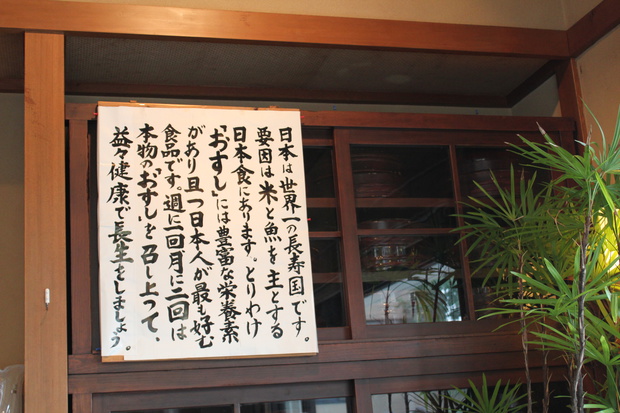 日本は世界一の長寿国です。
要因は米と魚を主とする
日本食にあります。とりわけ
「おすし」には豊富な栄養素
があり且つ日本人が最も好む
食品です。週に一回月に二回は
本物の“おすし”を召し上って、
益々健康で長生をしましょう。